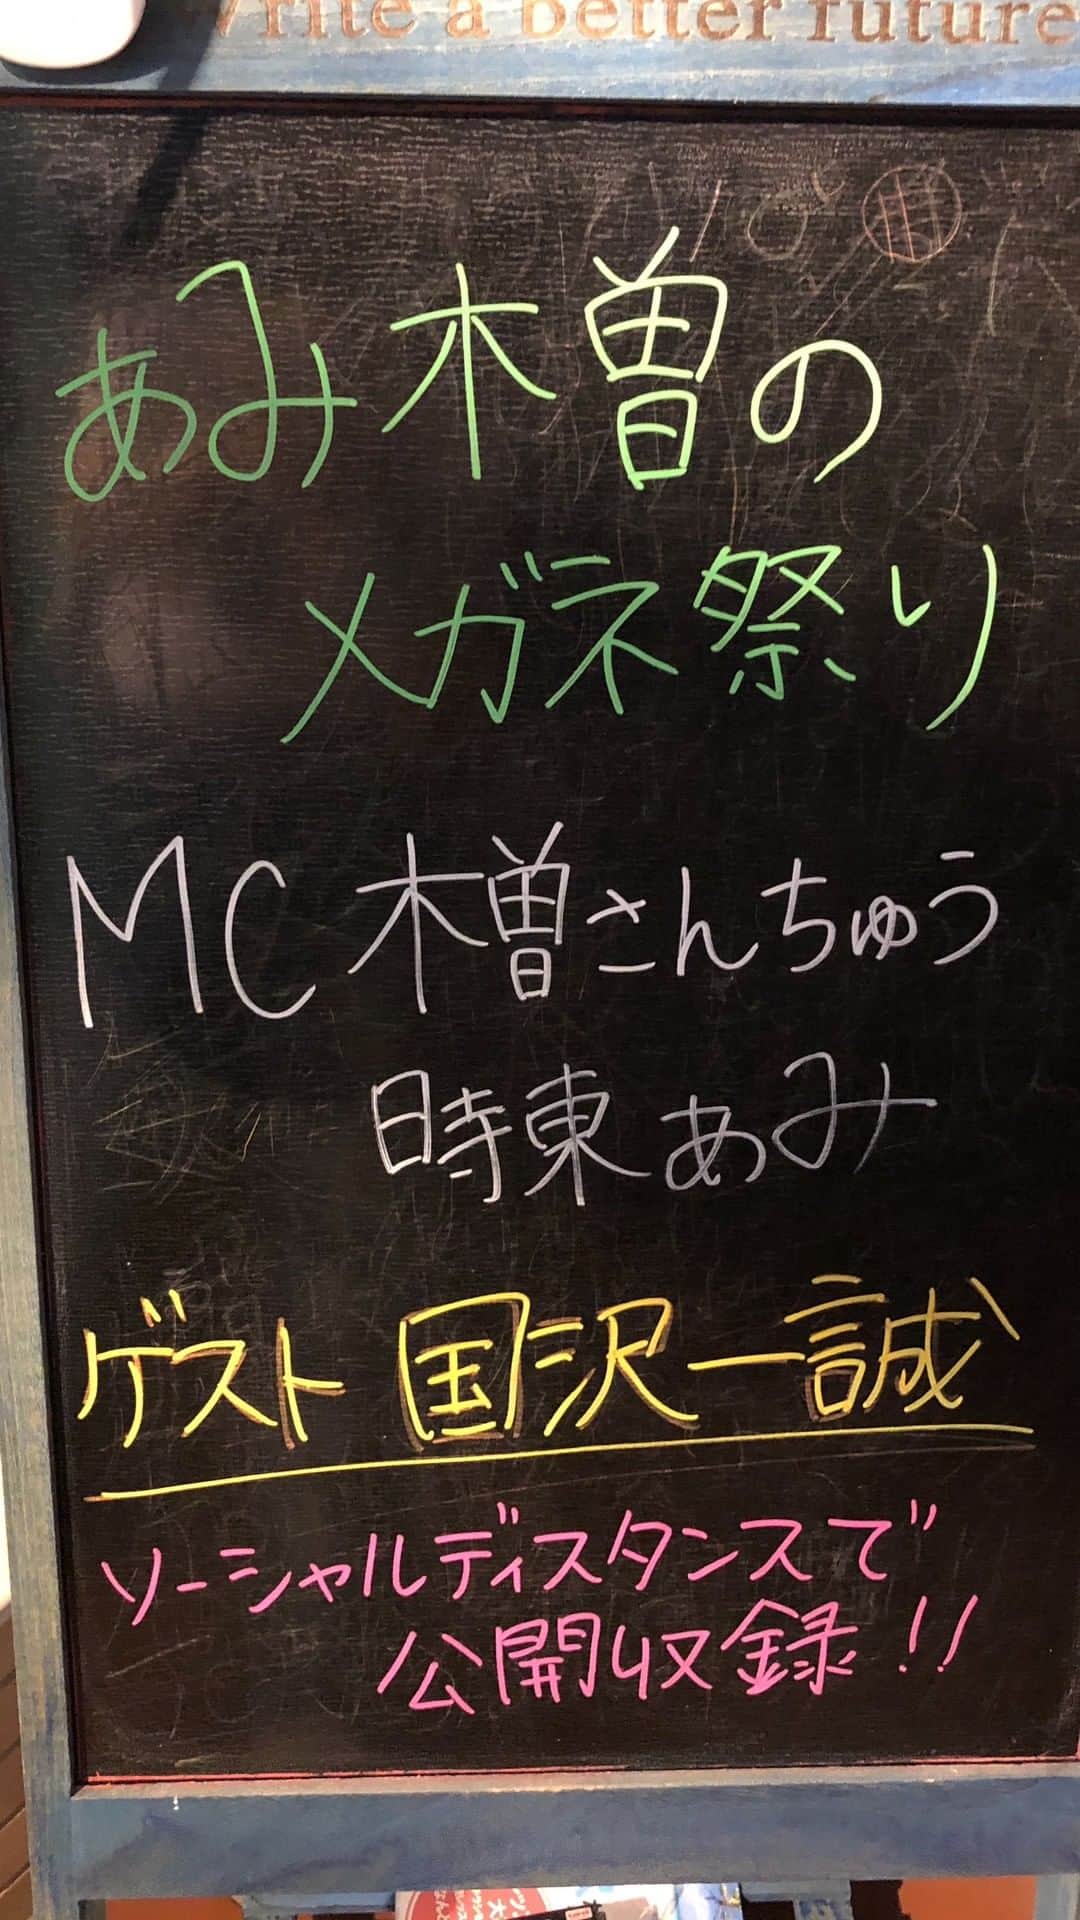 Write a better future
あみ木曽の
メガネ祭り
MC 木曽さんちゅう
時東あみ
ゲスト 国沢一誠
ソーシャルディスタンスで
公開収録!!